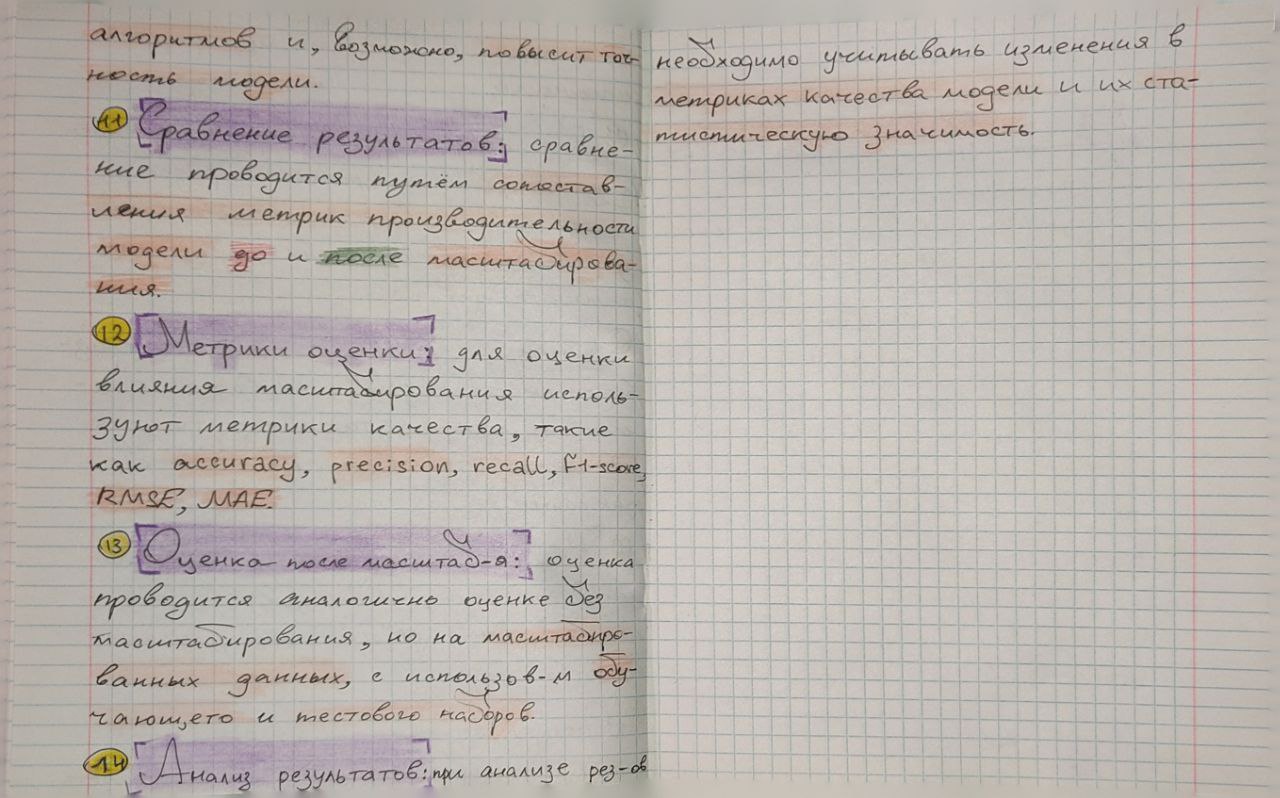 алгоритмов и, возможно, повысит точ-
ность модели.
11 Сравнение результатов: сравне-
ние проводится путём сопостав-
ления метрик производительности
модели до и после масштабирова-
ния.
12 Метрики оценки: для оценки
влияния масштабирования исполь-
зуют метрики качества, такие
как accuracy, precision, recall, F1-score,
RMSE, MAE.
13 Оценка после масштаб-я: оценка
проводится аналогично оценке без
масштабирования, но на масштабиро-
ванных данных, с использов-м обу-
чающего и тестового наборов.
14 Анализ результатов: при анализе рез-ов
необходимо учитывать изменения в
метриках качества модели и их ста-
тистическую значимость.